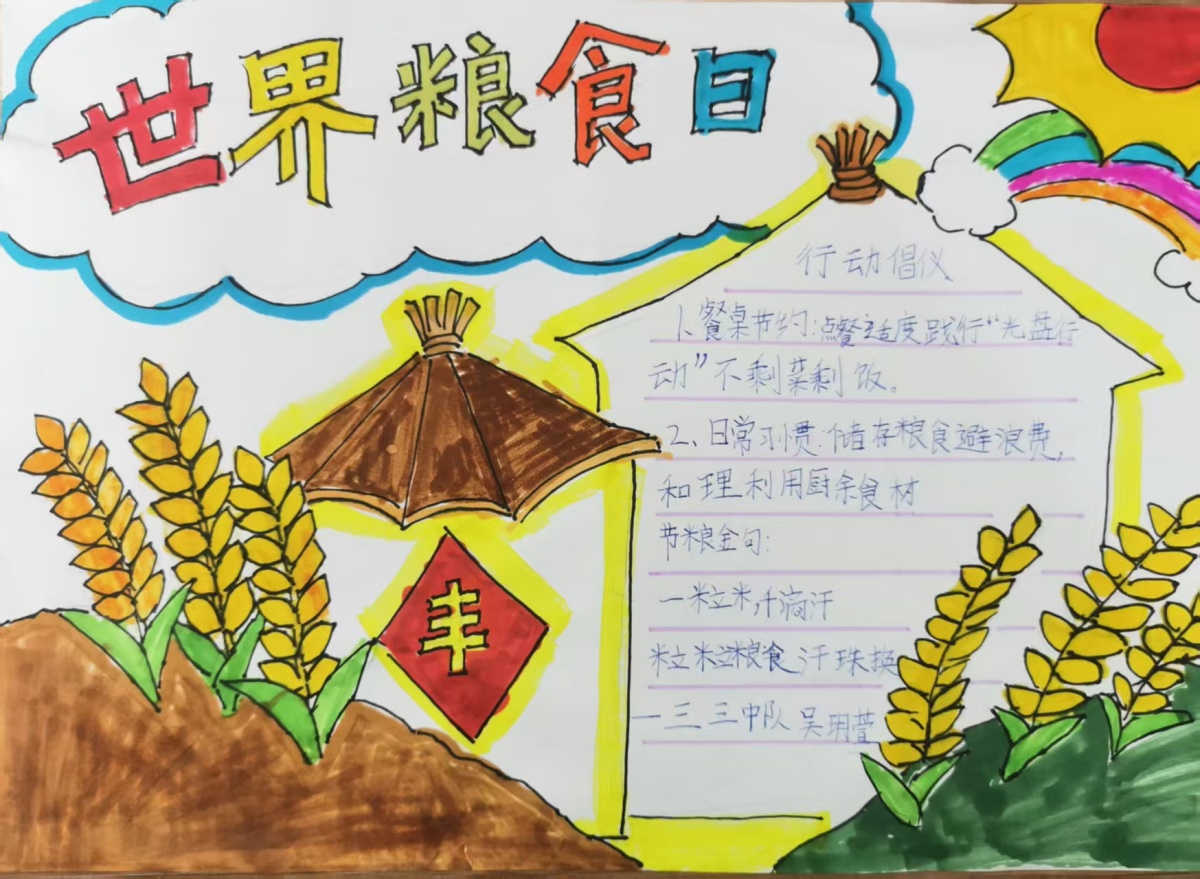 世界粮食日
行动倡仪
1、餐桌节约:点餐适度践行“光盘行
动”不剩菜剩饭。
2、日常习惯:储存粮食避浪费,
和理利用厨余食材
节粮金句:
一粒米千滴汗
粒粒粮食汗珠换
一三三中队吴玥萱
丰